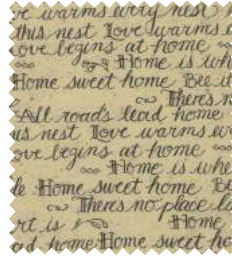 warms every nest
this nest Love warms
Love begins at home
Home is
Home sweet home Bee
There's
All roads lead home
us nest Love warms
ove begins at home
Home is whe
Home sweet home Be
There's no place
rt is Home
ad home Home sweet ho